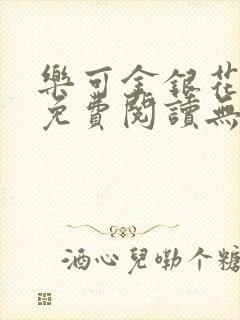 樂可金銀花
免費閱讀無
酒心兒嘞个糖